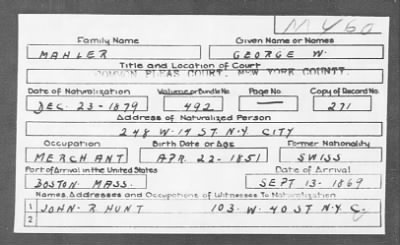 M 460
Family Name Given Name or Names
MAHLER GEORGE W.
Title and Location of Court
COMMON PLEAS COURT, NEW YORK COUNTY.
Date of Naturalization Volume or Bundle No. Page No. Copy of Record No.
DEC. 23-1879 492 — 271
Address of Naturalized Person
248 W. 19 ST. N.Y. CITY
Occupation Birth Date or Age Former Nationality
MERCHANT APR. 22-1851 SWISS
Port of Arrival in the United States Date of Arrival
BOSTON MASS. SEPT 13-1869
Names, Addresses and Occupations of Witnesses To Naturalization
1 JOHN. R. HUNT 103. W. 40 ST. N.Y. C.
2